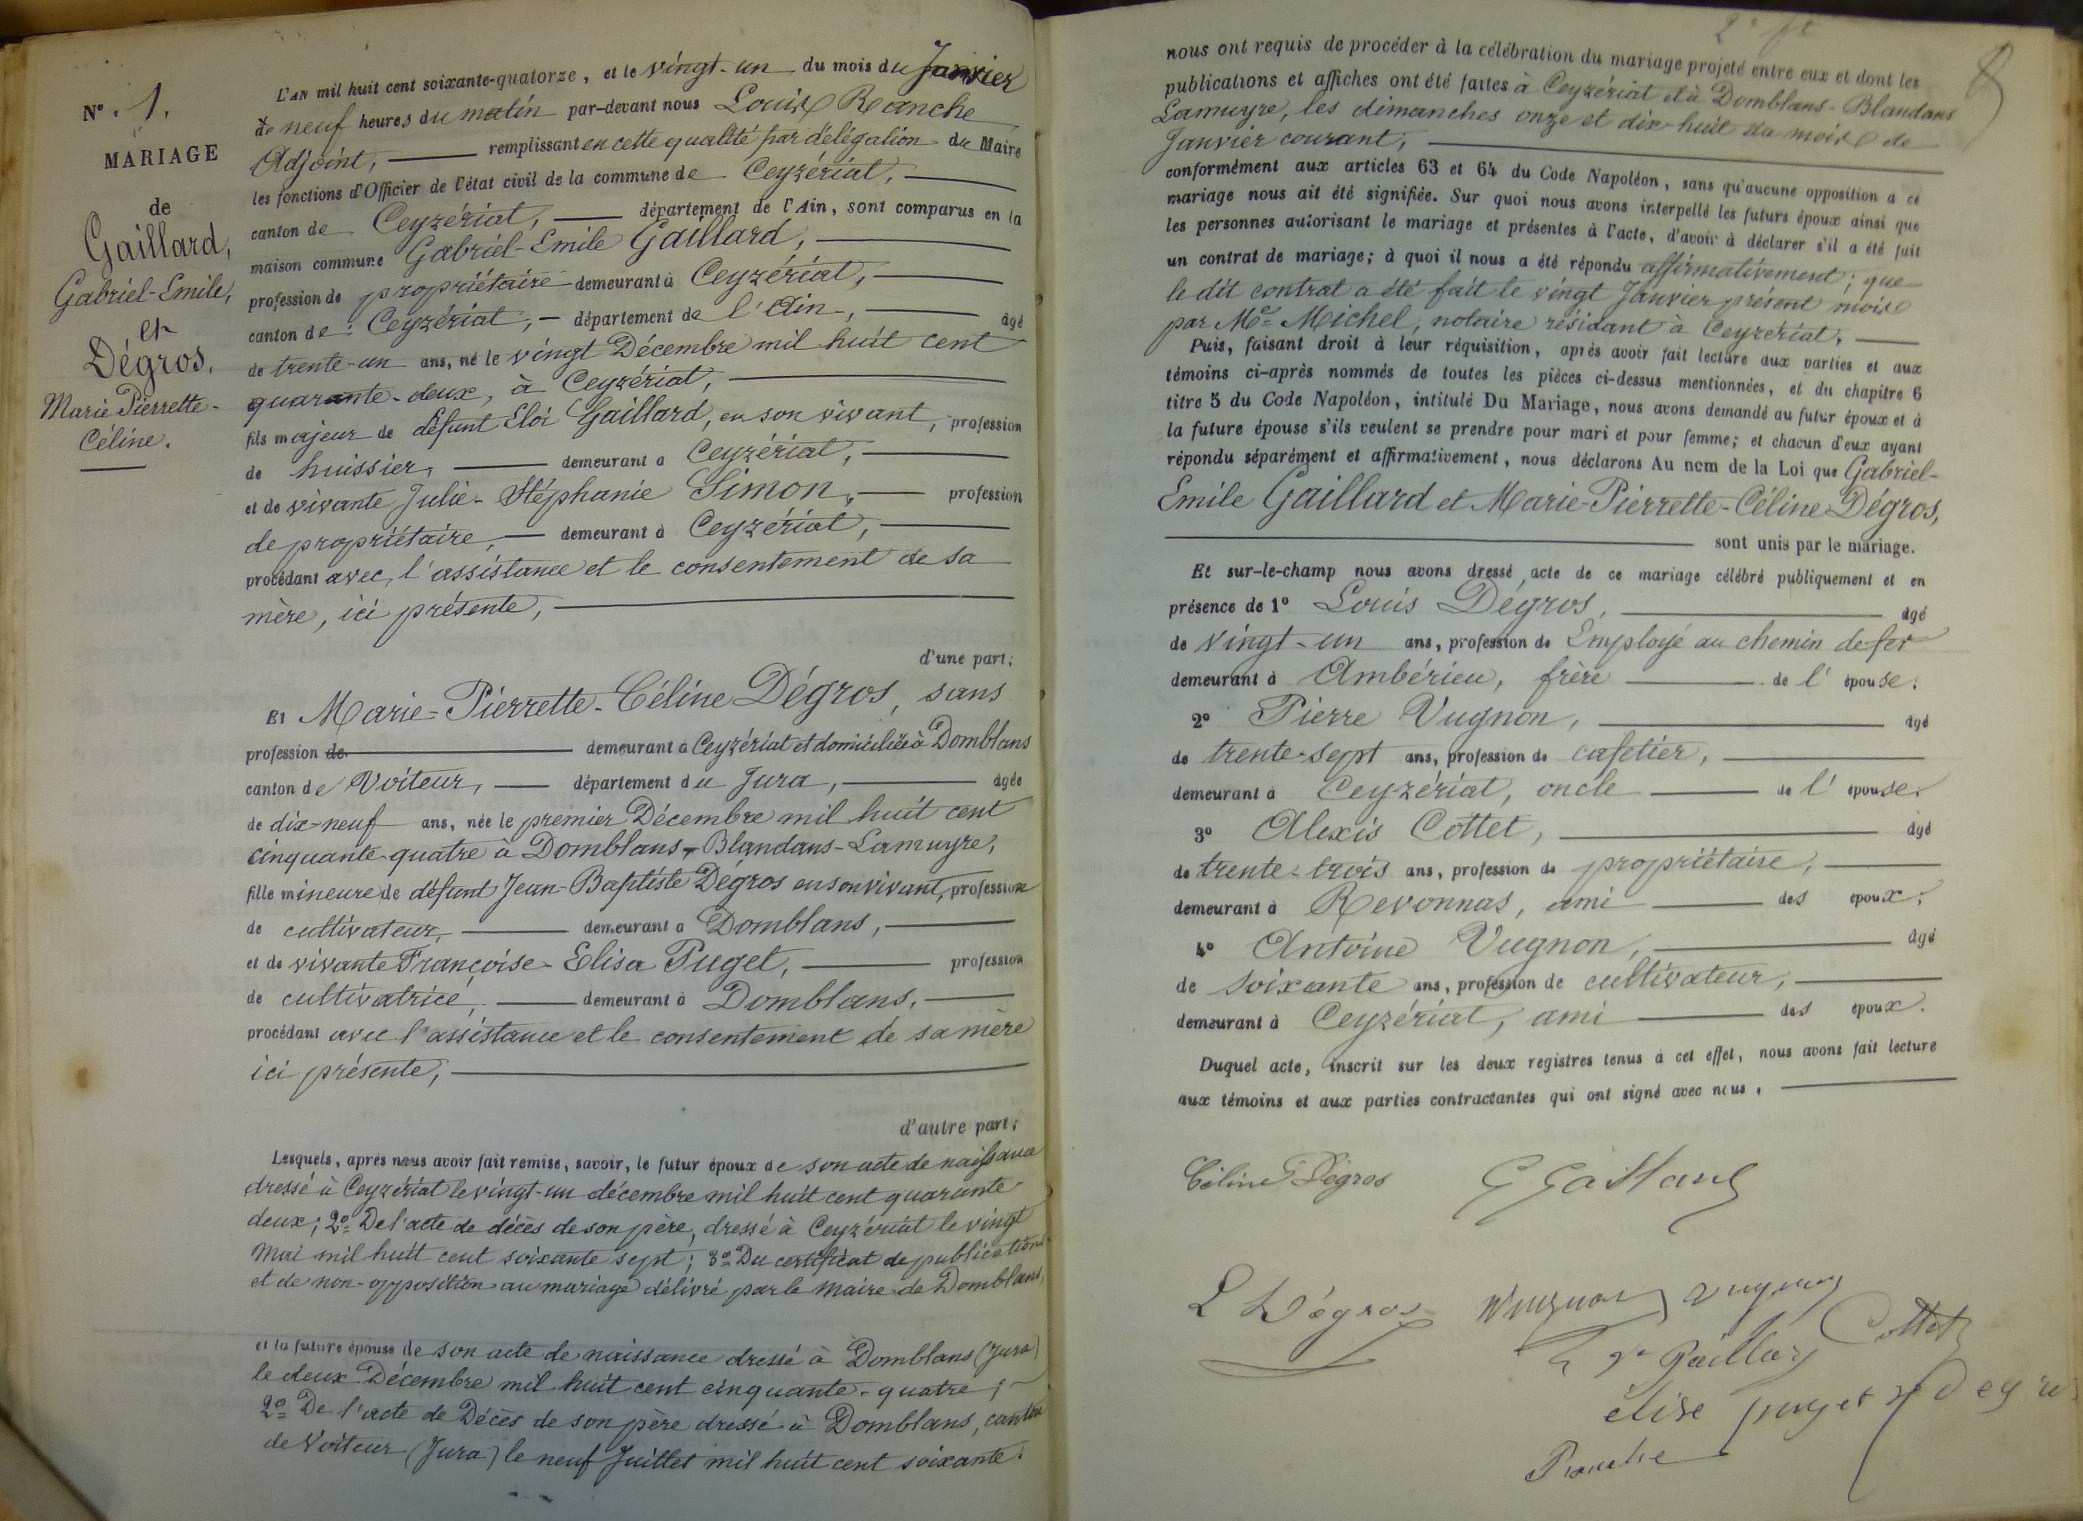 N° 1.
MARIAGE
de
Gaillard,
Gabriel-Emile,
et
Dégros,
Marie Pierrette-
Céline.
L'AN mil huit cent soixante-quatorze, et le vingt-un du mois du Janvier
de neuf heures du matin par-devant nous Louis Ranche
Adjoint, remplissant en cette qualité par délégation du Maire
les fonctions d'Officier de l'état civil de la commune de Ceyzériat,
canton de Ceyzériat, département de l'Ain, sont comparus en la
maison commune Gabriel-Emile Gaillard,
profession de propriétaire demeurant à Ceyzériat,
canton de Ceyzériat, département de l'Ain, âgé
de trente-un ans, né le vingt Décembre mil huit cent
quarante-deux, à Ceyzériat,
fils majeur de défunt Eloi Gaillard, en son vivant, profession
de huissier, demeurant à Ceyzériat,
et de vivante Julie-Stéphanie Simon, profession
de propriétaire, demeurant à Ceyzériat,
procédant avec l'assistance et le consentement de sa
mère, ici présente,
d'une part;
Et Marie-Pierrette-Céline Dégros, sans
profession de demeurant à Ceyzériat et domiciliée à Domblans
canton de Voiteur, département du Jura, âgée
de dix-neuf ans, née le premier Décembre mil huit cent
cinquante-quatre à Domblans-Blandans-Lamuyre,
fille mineure de défunt Jean-Baptiste Dégros en son vivant, profession
de cultivateur, demeurant à Domblans,
et de vivante Françoise-Elisa Puget, profession
de cultivatrice, demeurant à Domblans,
procédant avec l'assistance et le consentement de sa mère
ici présente,
d'autre part;
Lesquels, après nous avoir fait remise, savoir, le futur époux de son acte de naissance
dressé à Ceyzériat le vingt-un décembre mil huit cent quarante-
deux; 2° De l'acte de décès de son père, dressé à Ceyzériat le vingt
Mai mil huit cent soixante sept; 3° Du certificat de publications
et de non-opposition au mariage délivré par le Maire de Domblans,
et la future épouse de son acte de naissance dressé à Domblans (Jura)
le deux Décembre mil huit cent cinquante-quatre;
2° De l'acte de Décès de son père dressé à Domblans, canton
de Voiteur (Jura) le neuf Juillet mil huit cent soixante.
8
nous ont requis de procéder à la célébration du mariage projeté entre eux et dont les
publications et affiches ont été faites à Ceyzériat et à Domblans-Blandans
Lamuyre, les dimanches onze et dix-huit du mois de
Janvier courant,
conformément aux articles 63 et 64 du Code Napoléon, sans qu'aucune opposition à ce
mariage nous ait été signifiée. Sur quoi nous avons interpellé les futurs époux ainsi que
les personnes autorisant le mariage et présentes à l'acte, d'avoir à déclarer s'il a été fait
un contrat de mariage; à quoi il nous a été répondu affirmativement; que
le dit contrat a été fait le vingt Janvier présent mois
par Me Michel, notaire résidant à Ceyzériat,
Puis, faisant droit à leur réquisition, après avoir fait lecture aux parties et aux
témoins ci-après nommés de toutes les pièces ci-dessus mentionnées, et du chapitre 6
titre 5 du Code Napoléon, intitulé Du Mariage, nous avons demandé au futur époux et à
la future épouse s'ils veulent se prendre pour mari et pour femme; et chacun d'eux ayant
répondu séparément et affirmativement, nous déclarons Au nom de la Loi que Gabriel-
Emile Gaillard et Marie-Pierrette-Céline Dégros,
sont unis par le mariage.
Et sur-le-champ nous avons dressé acte de ce mariage célébré publiquement et en
présence de 1° Louis Dégros, âgé
de vingt-un ans, profession de Employé au chemin de fer
demeurant à Ambérieu, frère de l'épouse;
2° Pierre Vugnon, âgé
de trente-sept ans, profession de cafetier,
demeurant à Ceyzériat, oncle de l'épouse.
3° Alexis Cottet, âgé
de trente-trois ans, profession de propriétaire,
demeurant à Revonnas, ami des époux;
4° Antoine Vugnon, âgé
de soixante ans, profession de cultivateur,
demeurant à Ceyzériat, ami des époux.
Duquel acte, inscrit sur les deux registres tenus à cet effet, nous avons fait lecture
aux témoins et aux parties contractantes qui ont signé avec nous.
Céline Dégros G Gaillard
L Dégros Vugnon Vugnon
Cottet
Gaillard
élise puget Degros
Ranche